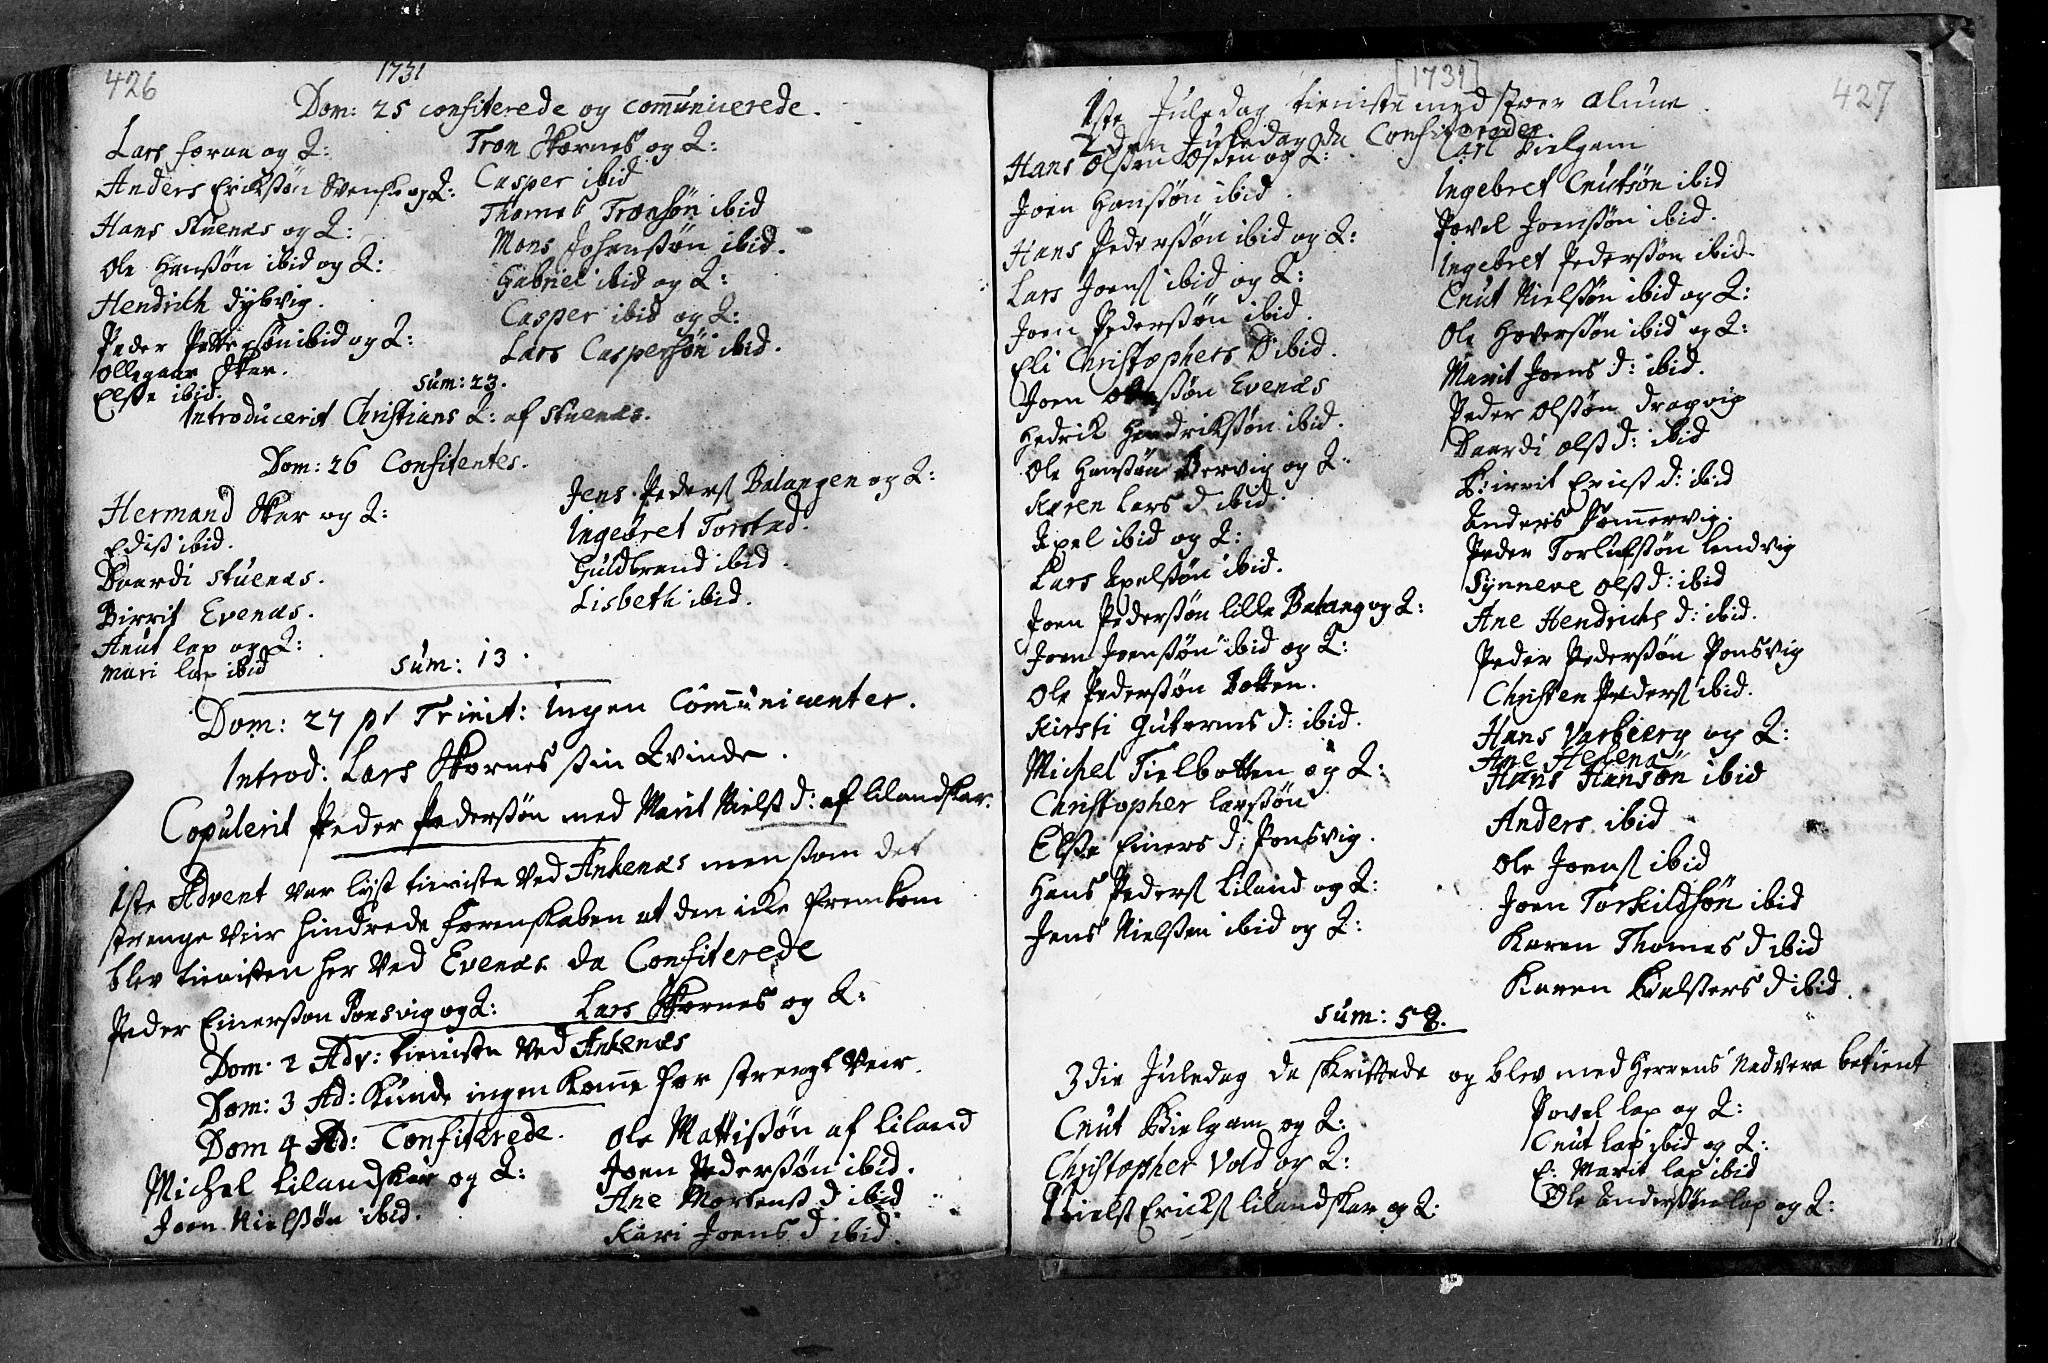 426
1731
Dom: 25 confiterede og com̄unicerede.
Lars foraa og Q:
Anders Erichsøn Svensk og Q:
Hans Stuenæs og Q:
Ole Hansøn ibid og Q:
Hendrich Dybvig.
Peder Pettersøn ibid og Q:
Ollegaar Skar.
Elsse ibid.
Tron Skornes og Q:
Casper ibid
Thomes Tronsøn ibid
Mons Johansøn ibid.
Gabriel ibid og Q:
Casper ibid og Q:
Lars Caspersøn ibid.
Sum: 23.
Introducerit Christians Q: af Stuenæs.
Dom: 26 Confitentes.
Hermand Skar og Q:
Ediss ibid.
Baardi Stuenæs.
Birrit Evenæs.
Knut lap og Q:
Mari lap ibid
Jens Peders Balangen og Q:
Ingebret Torstad.
Guldbrand ibid.
Lisbeth ibid.
Sum: 13.
Dom: 27 pt Trinit: Ingen Com̄unicanter.
Introd: Lars Skornes sin Qvinde.
Copulerit Peder Pedersøn med Marit Niels d: af lilandskar.
1ste Advent var lyst tieniste ved Ankenæs men som det
strenge veir hindrede forenskaben at den icke fremkom
blev tienisten her ved Evenæs. da Confiterede
Peder Einersøn Ponsvig og Q: Lars Skornes og Q:
Dom. 2 Adv: tieniste ved Ankenæs
Dom: 3 Ad: kunde ingen kom̄e for strengt veir.
Dom 4 Ad: Confiterede.
Michel Lilandskar og Q:
Joen Nielsøn ibid.
Ole Mattisøn af Liland
Joen Pedersøn ibid.
Ane Mortens d ibid
Kari Joens d ibid.
[1731]
427
1ste Juledag tieniste med stor alum.
2den Juledag da Confiterede
Hans Olsen Osen og Q:
Joen Hansøn ibid.
Hans Pedersøn ibid og Q:
Lars Joens ibid og Q:
Joen Pedersøn ibid.
Eli Christophers D ibid.
Joen Olesøn Evenæs
Hedrik Hendriksøn ibid.
Ole Hansøn Bervig og Q:
Karen Lars d ibid.
Axel ibid og Q:
Lars Axelsøn ibid.
Joen Pedersøn lille Balang og Q:
Joen Joensøn ibid og Q:
Ole Pedersøn Botten.
Kirsti Gutorms d: ibid.
Michel Tielbotten og Q:
Christopher larsøn
Elsse Einers d: Ponsvig.
Hans Peders Liland og Q:
Jens Nielsen ibid og Q:
Carl Bielgam
Ingebret Cnutsøn ibid
Povel Joensøn ibid.
Ingebret Pedersøn ibid.
Cnut Nielsøn ibid og Q:
Ole Hoversøn ibid og Q:
Marit Joens d: ibid.
Peder Olsøn Dragvig
Baardi Ols d: ibid
Birrit Erics d: ibid
Anders Som̄ervig.
Peder Torlufsøn Lendvig
Synneve Ols d: ibid
Ane Hendrichs d: ibid.
Peder Pedersøn Ponsvig
Christen Peders ibid.
Hans Varbierg og Q:
Ane Helena
Hans Hansøn ibid
Anders ibid
Ole Joens ibid
Joen Torkildsøn ibid
Karen Thomes d ibid
Karen Kielsters d ibid.
Sum: 58.
3die Juledag da skriftede og blev med Herrens Nadvere betient
Cnut Bielgam og Q:
Christopher Vold og Q:
Niels Ericks lilandskar og Q:
Povel lap og Q:
Cnut lap ibid og Q:
E: Marit lap ibid
Ole Andersøn lap og Q: